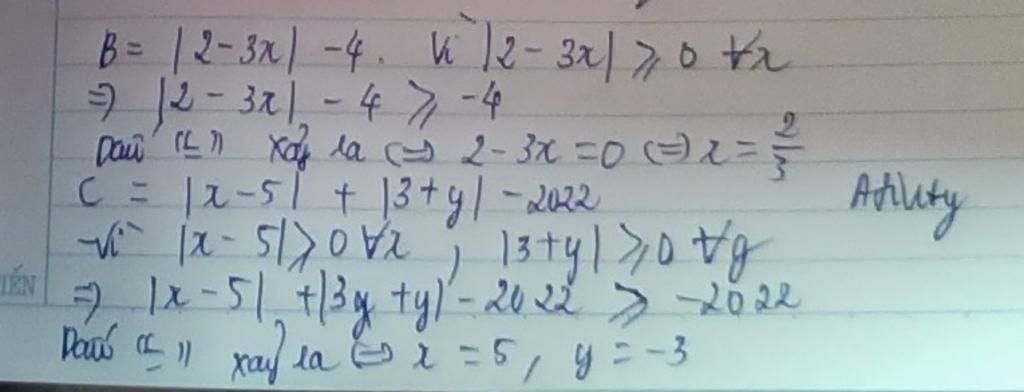 B = |2 - 3x| - 4. Vì |2 - 3x| ⩾ 0 ∀x
=> |2 - 3x| - 4 ⩾ -4
Dấu "=" xảy ra <=> 2 - 3x = 0 <=> x = 2/3
C = |x - 5| + |3 + y| - 2022
Vì |x - 5| ⩾ 0 ∀x, |3 + y| ⩾ 0 ∀y
IẾN
=> |x - 5| + |3y + y| - 2022 ⩾ -2022
Dấu "=" xảy ra <=> x = 5, y = -3